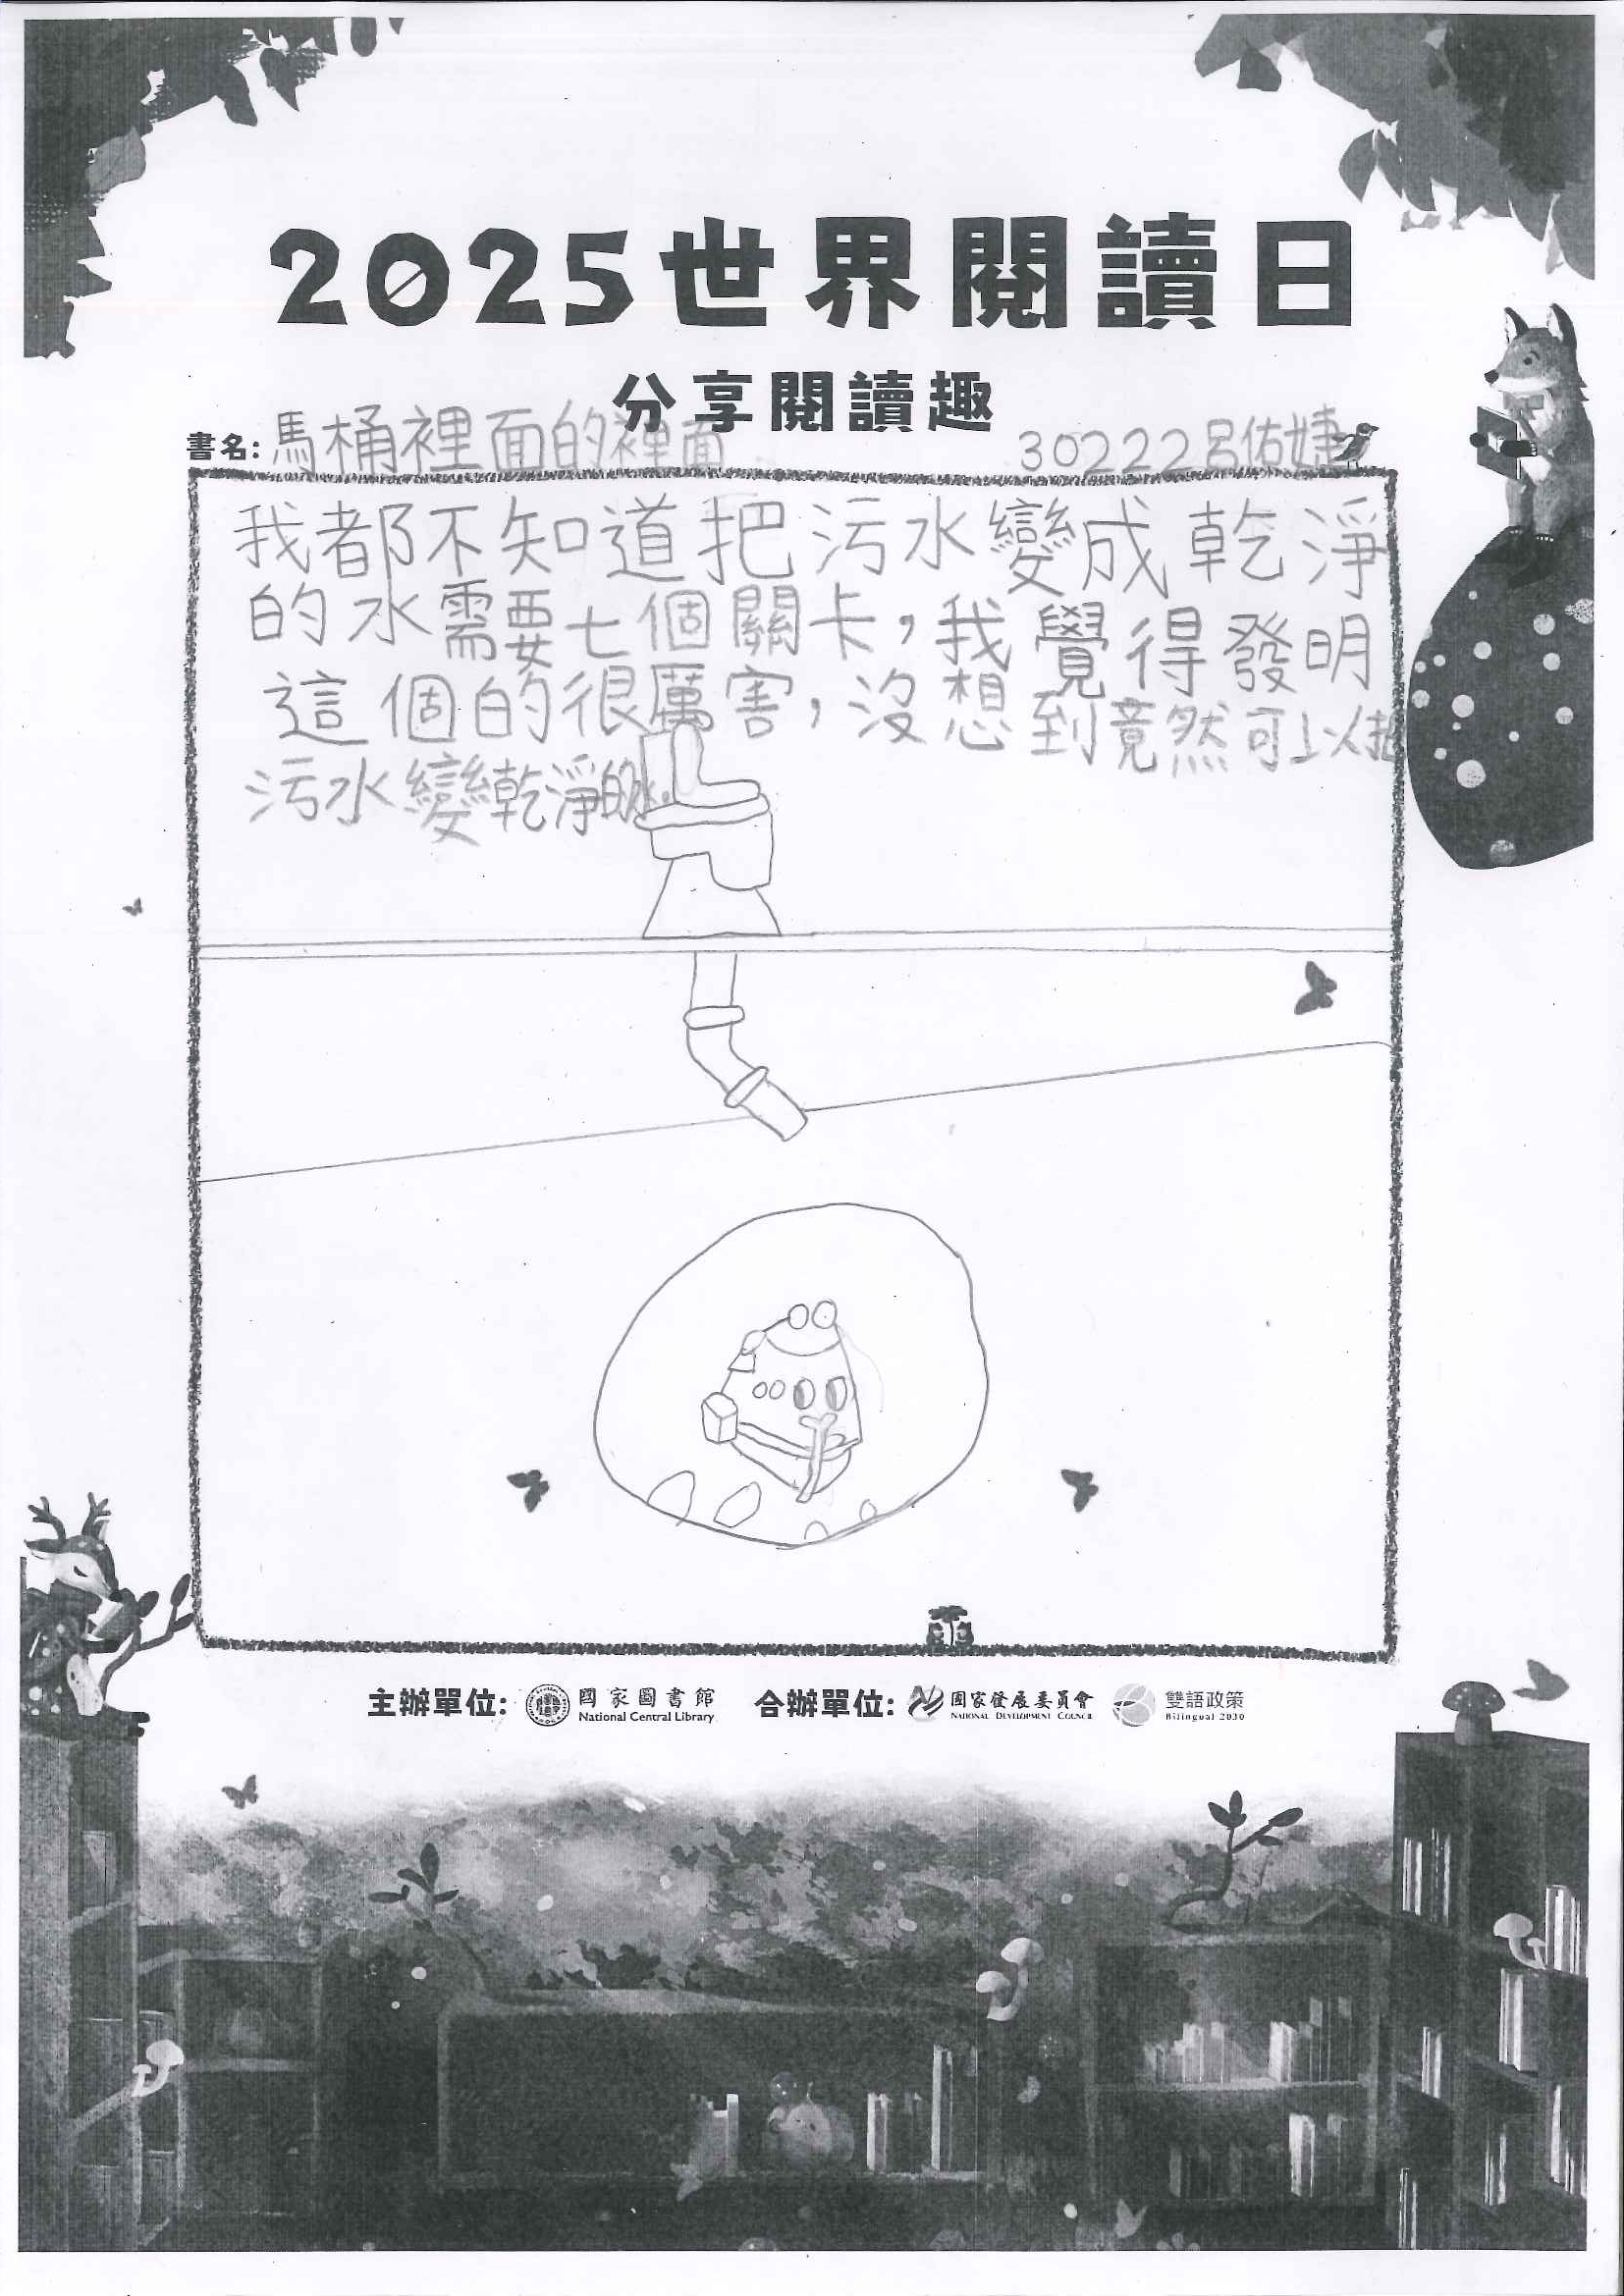 2025世界閱讀日
分享閱讀趣
書名:馬桶裡面的裡面 30222呂佑婕
我都不知道把污水變成乾淨
的水需要七個關卡,我覺得發明
這個的很厲害,沒想到竟然可以把
污水變乾淨的水。
主辦單位: 國家圖書館 National Central Library 合辦單位: 國家發展委員會 NATIONAL DEVELOPMENT COUNCIL 雙語政策 Bilingual 2030